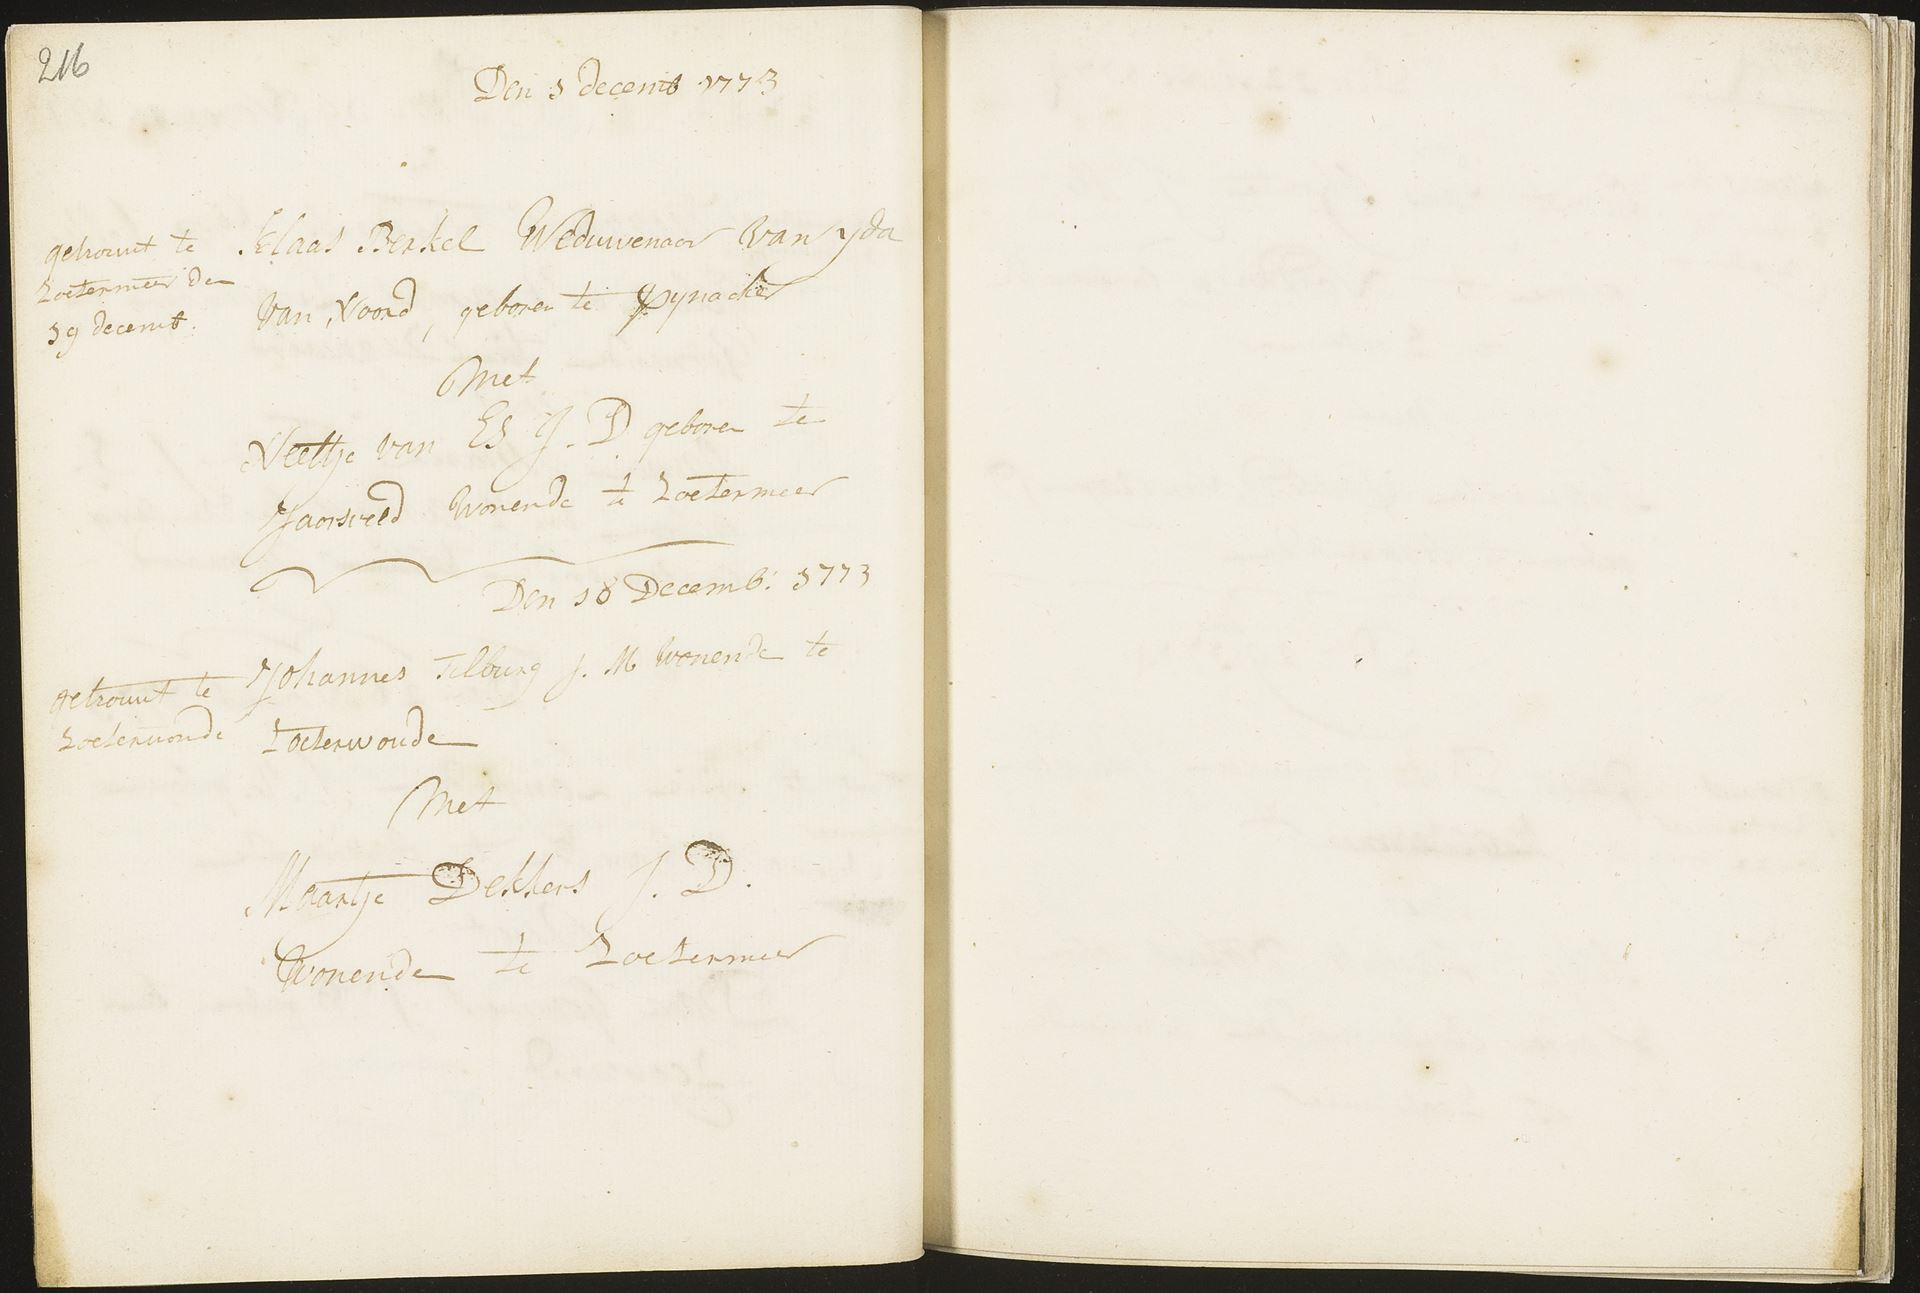 216
Den 1 decemb 1773
getrouwt te
Zoetermeer den
19 decemb.
Klaas Berkel Weduwenaar Van yda
Van Noord, geboren te Pynacker
Met
Neeltje van Es J. D geboren te
Jaarsveld Wonende te Zoetermeer
Den 18 Decemb: 1773
getrouwt te
Zoeterwoude
Johannes Tilburg J. M Wonende te
Zoeterwoude
Met
Maartje Dekkers J. D.
Wonende te Zoetermeer